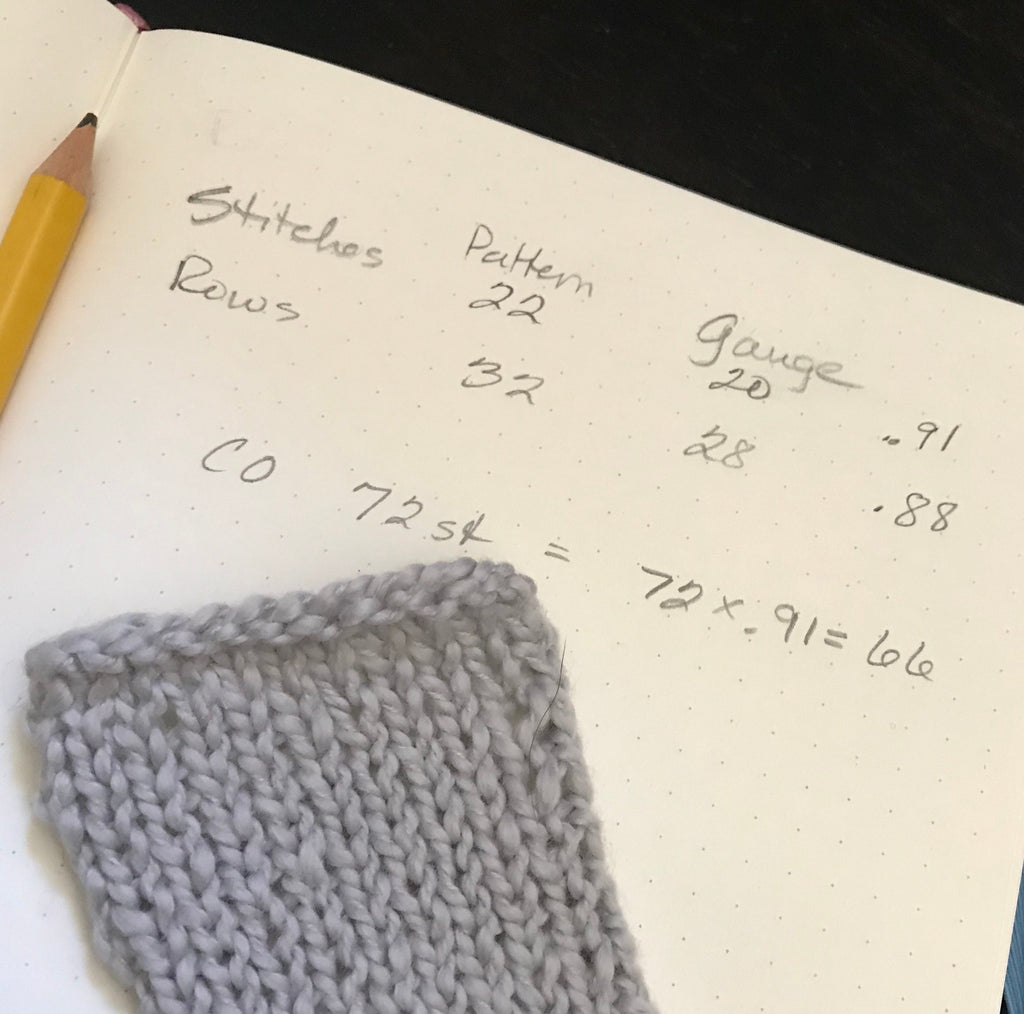 Pattern Gauge
Stitches 22 20 .91
Rows 32 28 .88
CO 72 st = 72 x .91 = 66